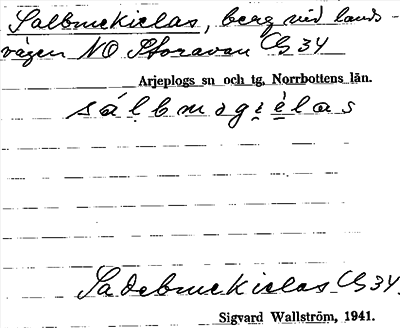 Salbmekielas, berg vid lands-
vägen NO Storavan C34
Arjeplogs sn och tg, Norrbottens län.
sálbmagi̯èlas
Sadebmekielas C34.
Sigvard Wallström, 1941.